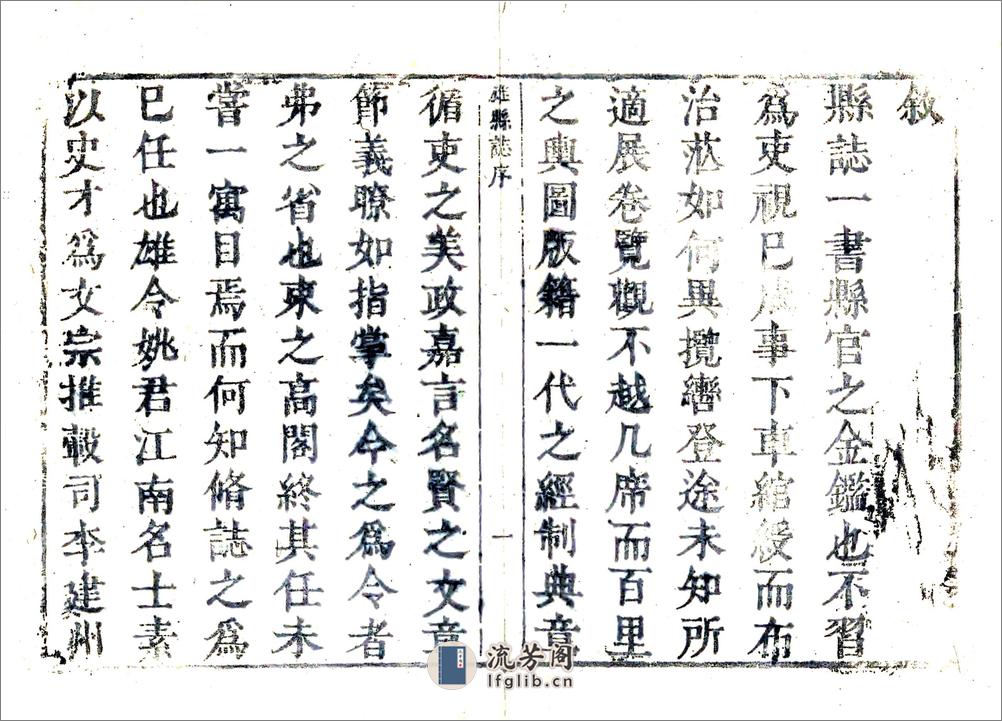 敘
縣誌一書縣官之金鑑也不習
爲吏視已成事下車綰綬而布
治茫如何異攬轡登途未知所
適展卷覽觀不越几席而百里
之輿圖版籍一代之經制典章
雄縣誌序
一
循吏之美政嘉言名賢之文章
節義瞭如指掌矣今之爲令者
弗之省也束之高閣終其任未
嘗一寓目焉而何知脩誌之爲
巳任也雄令姚君江南名士素
以史才爲文宗推轂司李建州
流芳阁
lfglib.cn